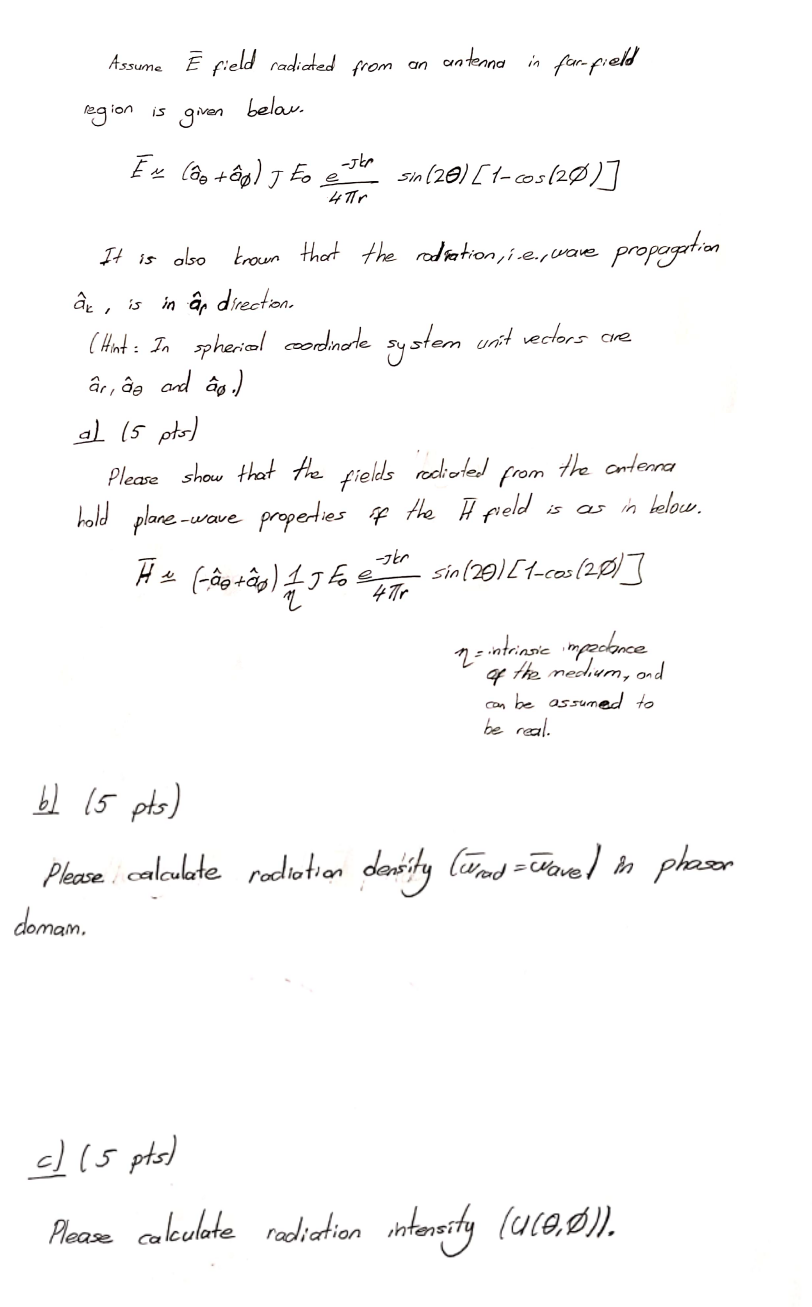 Assume Ē field radiated from an antenna in far-field
region is given below.
Ē ≃ (âθ + âø) J E₀ e^-Jkr / 4πr sin(2θ) [1-cos(2Ø)]
It is also known that the radiation, i.e., wave propagation
âk , is in âr direction.
(Hint : In spherical coordinate system unit vectors are
âr, âθ and âø.)
a) (5 pts)
Please show that the fields radiated from the antenna
hold plane-wave properties if the H̄ field is as in below.
H̄ ≃ (-âθ + âø) 1/η J E₀ e^-Jkr / 4πr sin(2θ) [1-cos(2Ø)]
η = intrinsic impedance
of the medium, and
can be assumed to
be real.
b) (5 pts)
Please calculate radiation density (w̄rad = w̄ave) in phasor
domain.
c) (5 pts)
Please calculate radiation intensity (U(θ,Ø)).